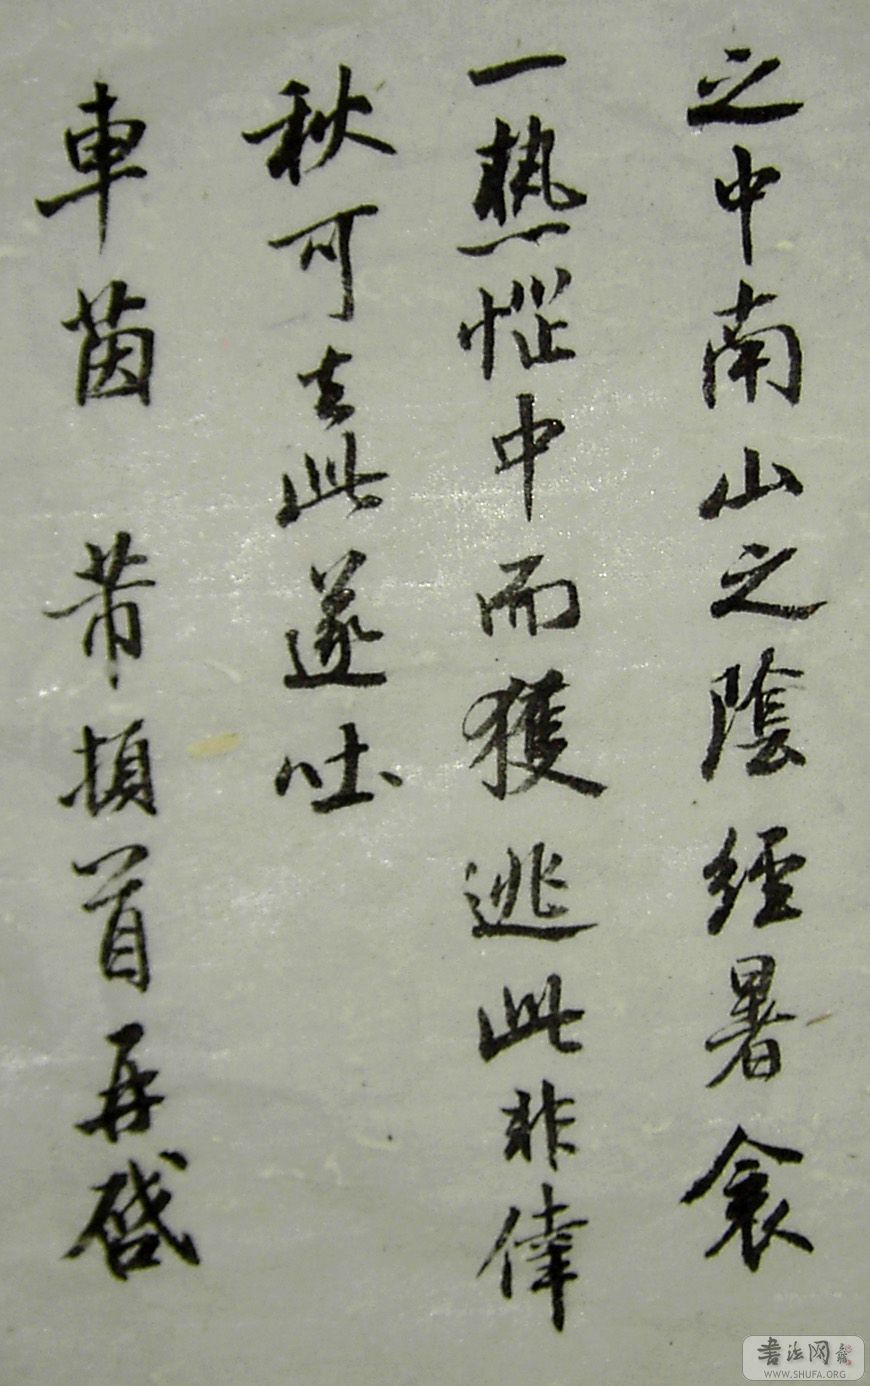 之中南山之陰經暑衾
一熱惱中而獲逃此非倖
秋可去此遂吐
車茵 芾頓首再啓
書法网
WWW.SHUFA.ORG